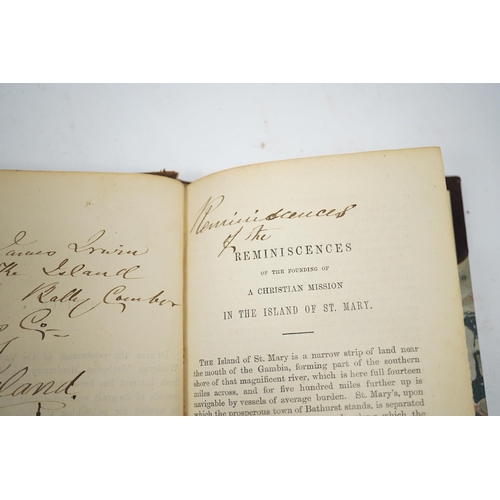 James Irwin
The Island
Bally Comber
Co
land.
Reminiscences
of the
REMINISCENCES
OF THE FOUNDING OF
A CHRISTIAN MISSION
IN THE ISLAND OF ST. MARY.
THE Island of St. Mary is a narrow strip of land near
the mouth of the Gambia, forming part of the southern
shore of that magnificent river, which is here full fourteen
miles across, and for five hundred miles further up is
navigable by vessels of average burden. St. Mary's, upon
which the prosperous town of Bathurst stands, is separated
which the